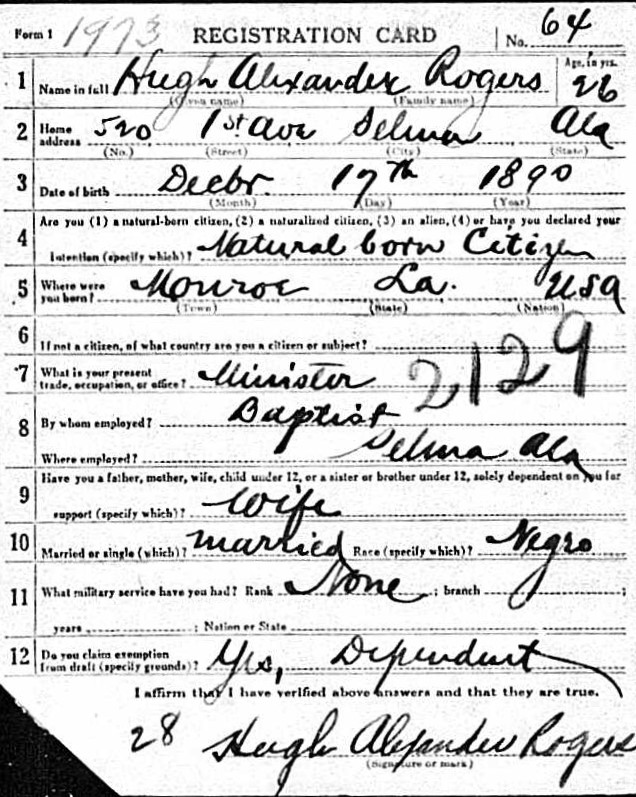 Form 1 1973 REGISTRATION CARD No. 64
1 Name in full Hugh Alexander Rogers Age, in yrs. 26
(Given name) (Family name)
2 Home address 520 1st Ave Selma Ala
(No.) (Street) (City) (State)
3 Date of birth Decbr. 17th 1890
(Month) (Day) (Year)
4 Are you (1) a natural-born citizen, (2) a naturalized citizen, (3) an alien, (4) or have you declared your
intention (specify which)? Natural born Citizen
5 Where were you born? Monroe La. USA
(Town) (State) (Nation)
6 If not a citizen, of what country are you a citizen or subject?
7 What is your present trade, occupation, or office? Minister 2129
8 By whom employed? Baptist
Where employed? Selma Ala
9 Have you a father, mother, wife, child under 12, or a sister or brother under 12, solely dependent on you for
support (specify which)? Wife
10 Married or single (which)? married Race (specify which)? Negro
11 What military service have you had? Rank None ; branch
years ; Nation or State
12 Do you claim exemption from draft (specify grounds)? Yes, Dependent
I affirm that I have verified above answers and that they are true.
28 Hugh Alexander Rogers
(Signature or mark)